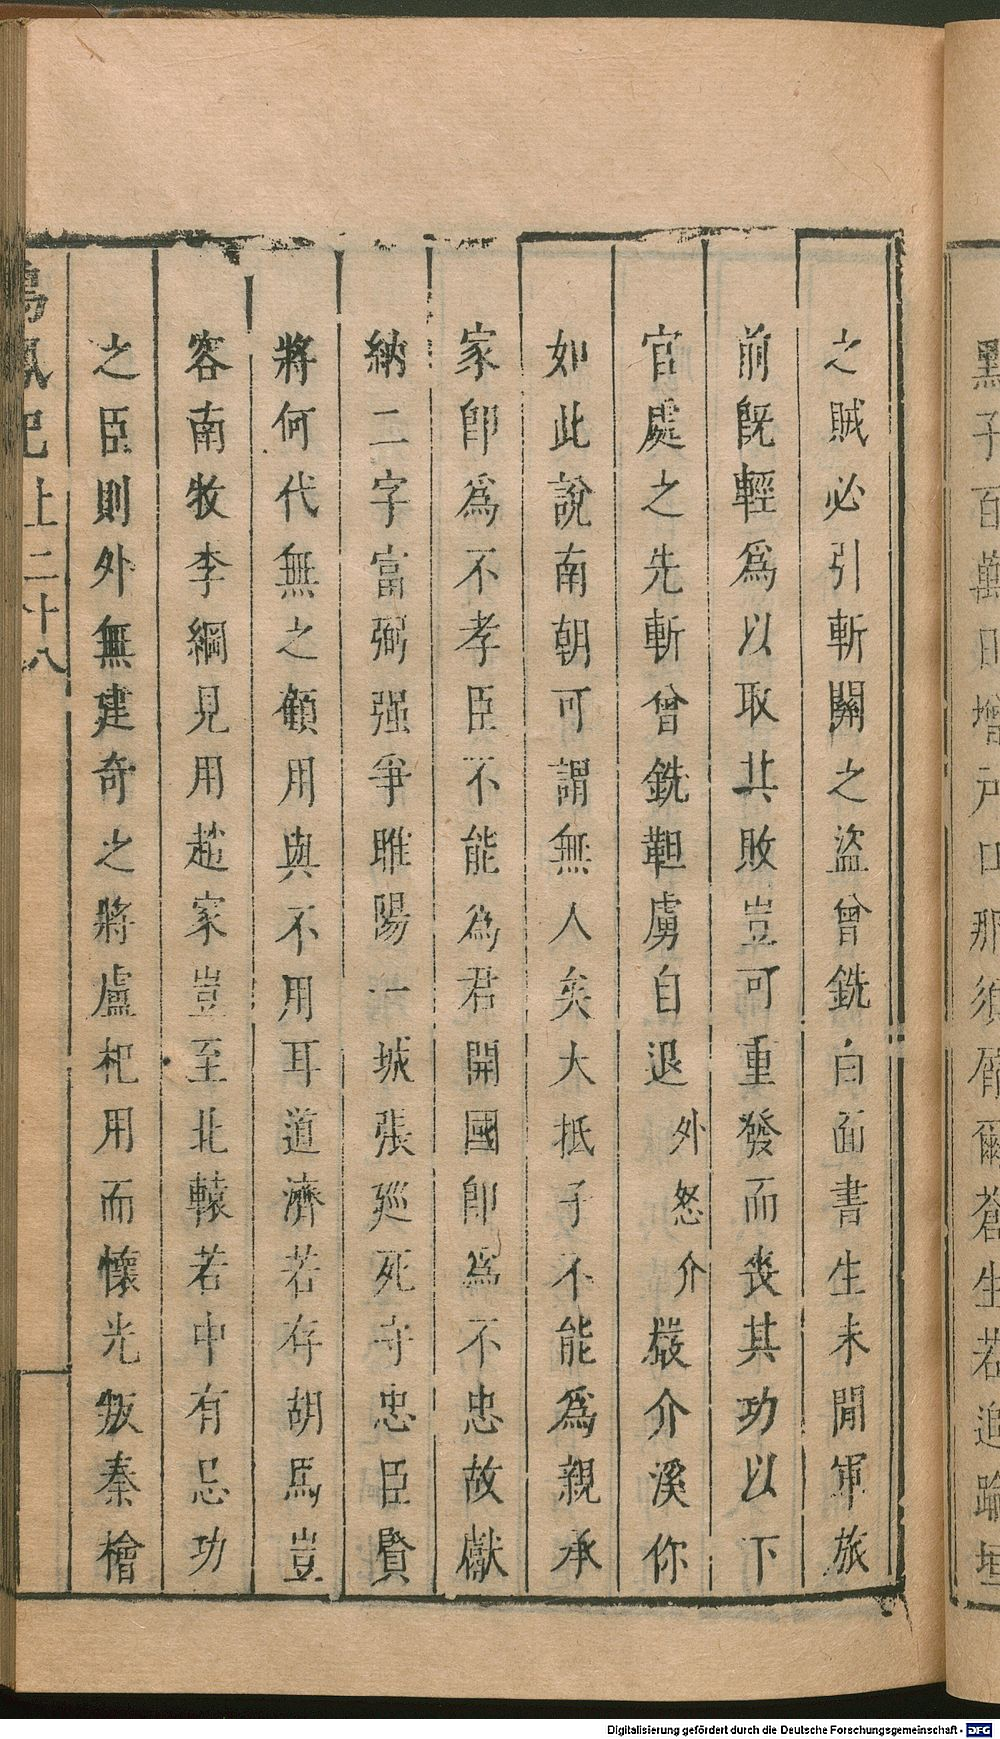 之賊必引斬關之盜曾銑白面書生未閒軍旅
前旣輕爲以取其敗豈可重發而喪其功以下
官處之先斬曾銑鞑虜自退外怒介嚴介溪你
如此說南朝可謂無人矣大抵子不能爲親承
家卽爲不孝臣不能爲君開國卽爲不忠故獻
納二字富弼强爭睢陽一城張廵死守忠臣賢
將何代無之顧用與不用耳道濟若存胡馬豈
容南牧李綱見用趙家豈至北轅若中有忌功
之臣則外無建奇之將盧杞用而懷光叛秦檜
鳴鳳記上二十八
Digitalisierung gefördert durch die Deutsche Forschungsgemeinschaft - DFG